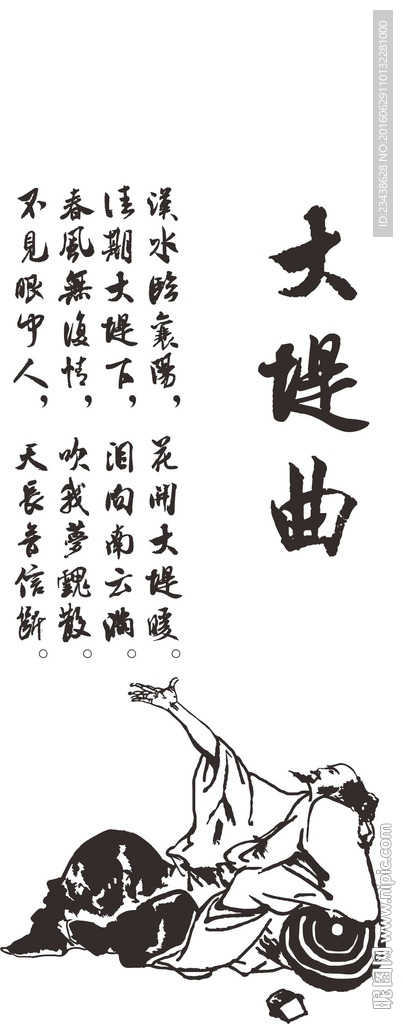 大堤曲
漢水臨襄陽，花開大堤暖。
佳期大堤下，泪向南云滿。
春風無復情，吹我夢魂散。
不見眼中人，天長音信斷。
ID:23438628 NO:20160629110132281000
昵图网 www.nipic.com